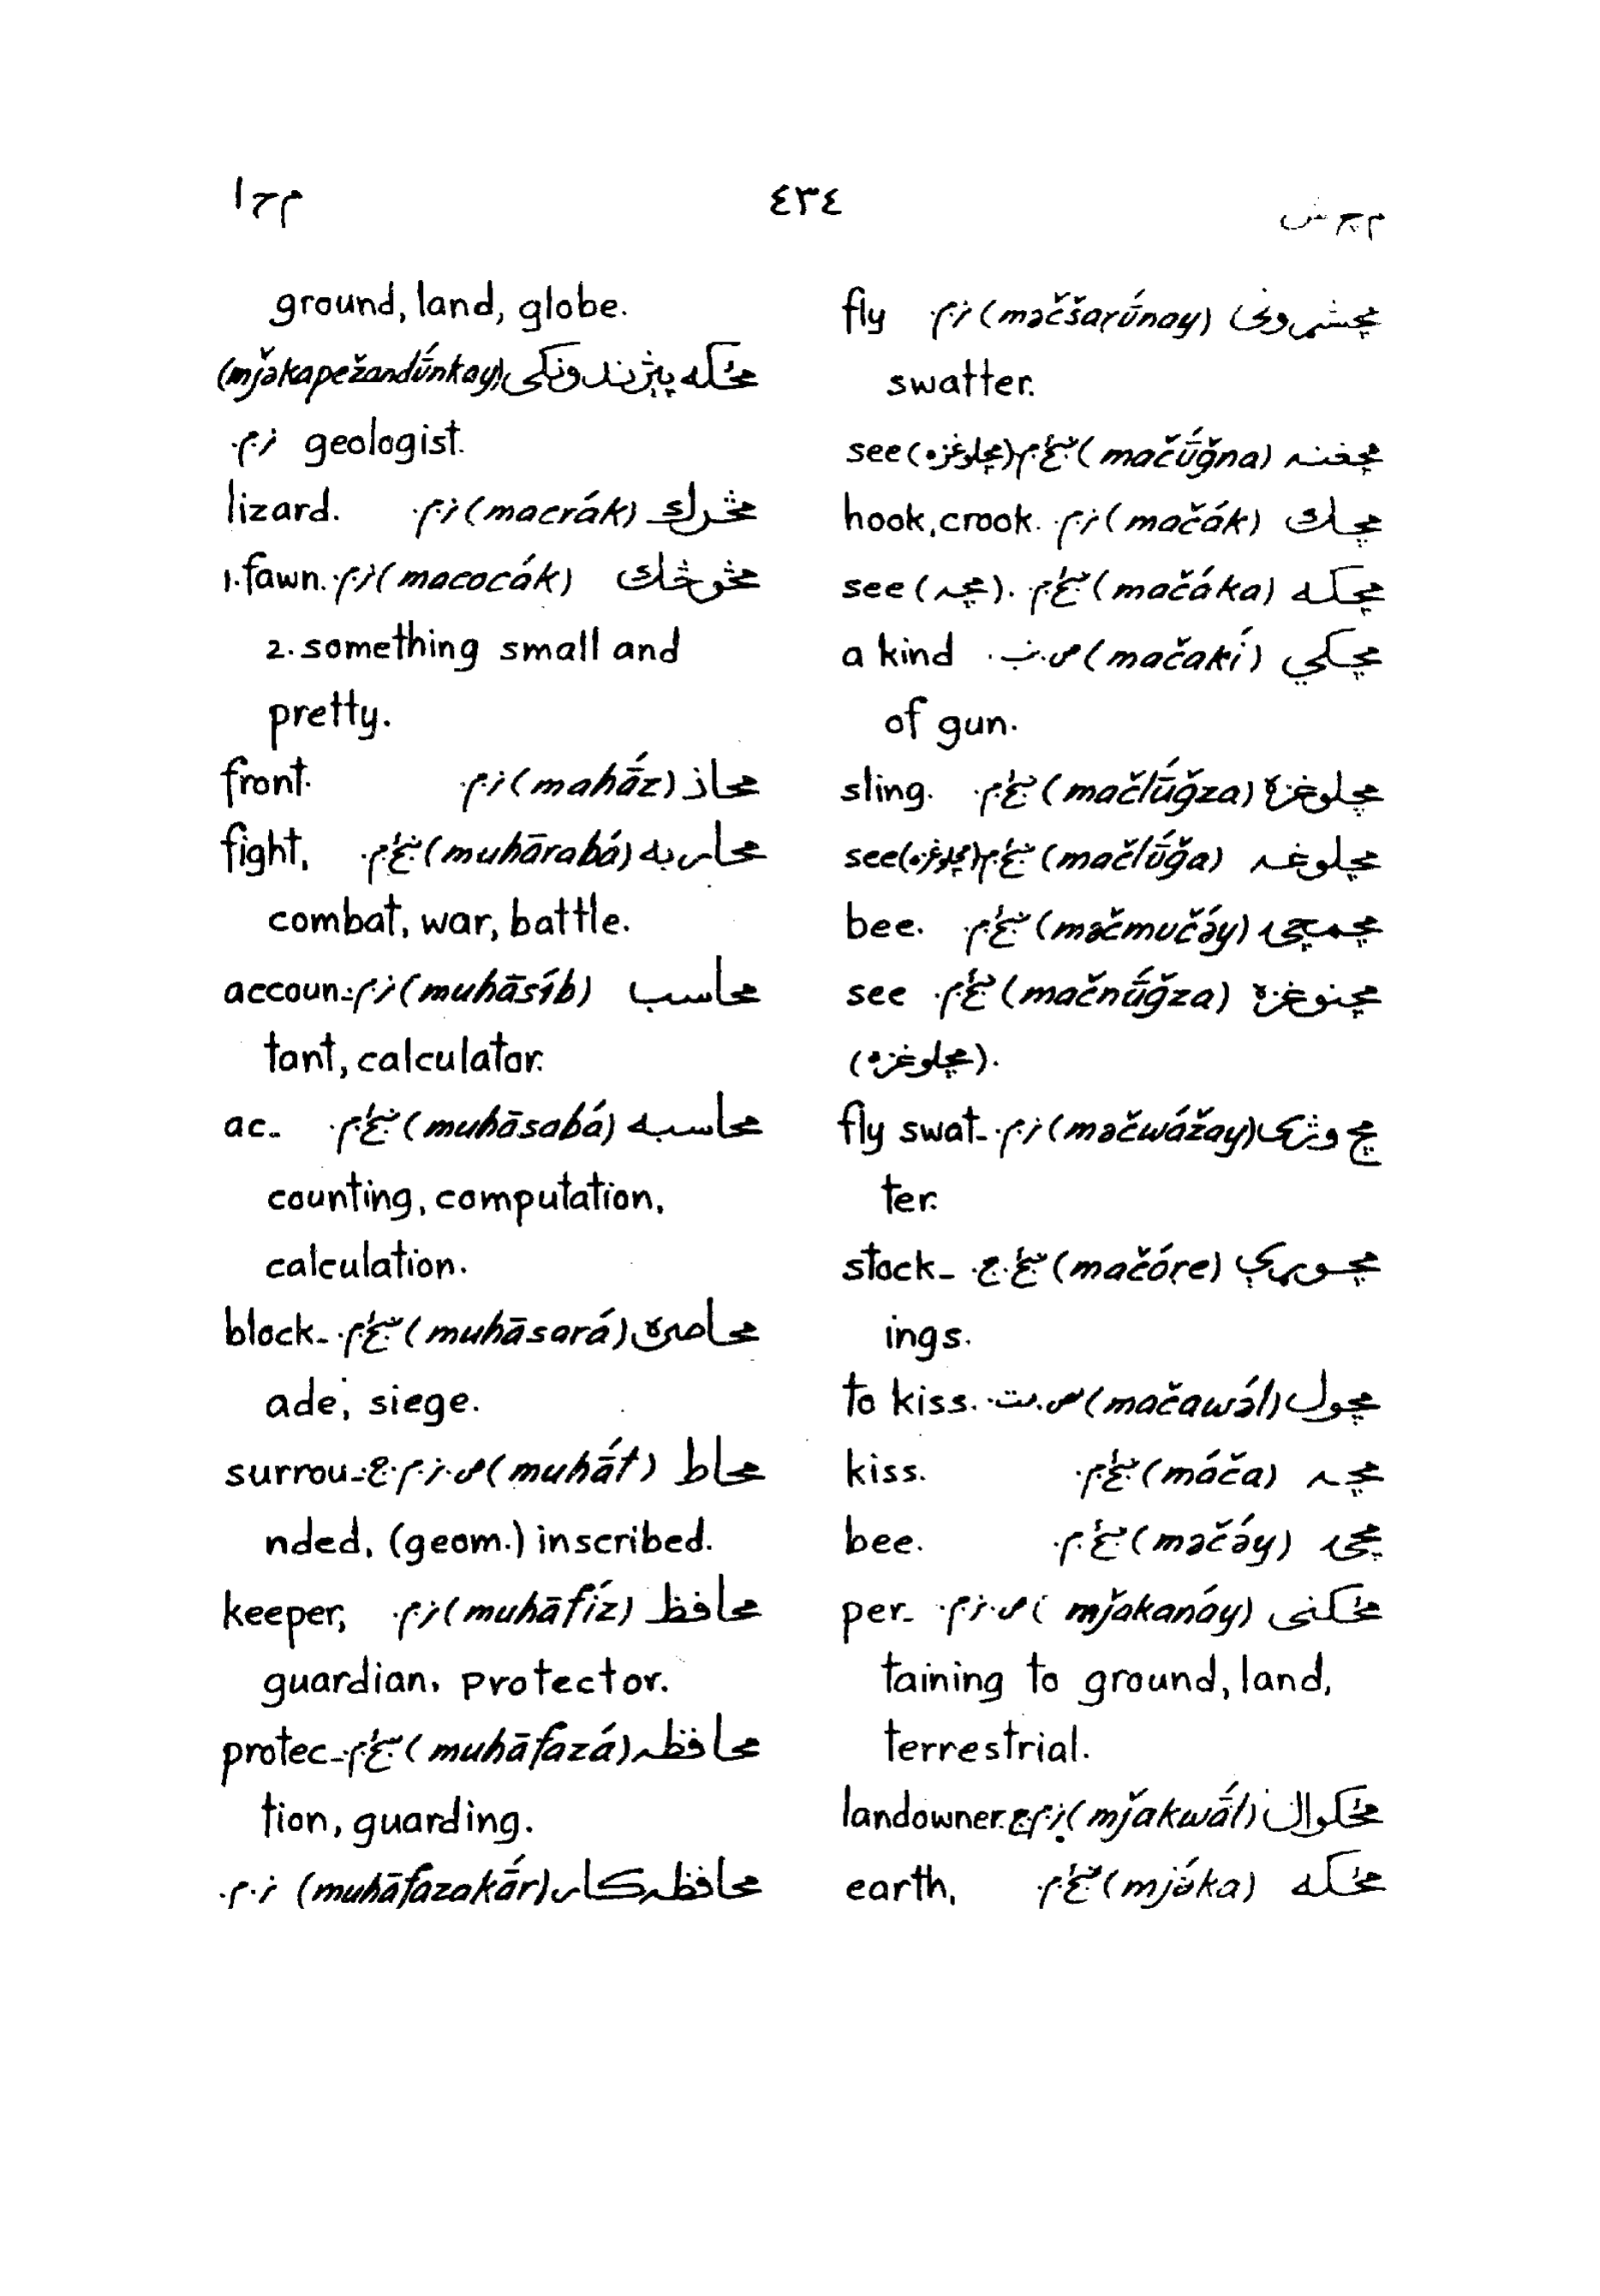 م ح ا
٤٣٤
م چ ش
fly ز.م. (məčšaṛū́nay) مچشړونی
swatter.
see (مچلوغزه) ښځ.م (mačū́ğna) مچغنه
hook, crook. ز.م. (mačák) مچك
see (مچه). ښځ.م (mačáka) مچكه
a kind ص.ښ. (mačakí) مچكي
of gun.
sling. ښځ.م. (mačlū́ğza) مچلوغزه
see (مچلوغزه) ښځ.م (mačlū́ğa) مچلوغه
bee. ښځ.م. (məčmučə́y) مچمچۍ
see ښځ.م. (mačnū́ğza) مچنوغزه
(مچلوغزه).
fly swat- ز.م. (məčwážay) مچ وژی
ter.
stock- ښځ.ج. (mačóṛe) مچوړې
ings.
to kiss. (mačawə́l) مچول
kiss. ښځ.م. (máča) مچه
bee. ښځ.م. (məčə́y) مچۍ
per- ص.ز.م. (mǰəkanáy) مځكنی
taining to ground, land,
terrestrial.
landowner. ز.م.ج (mǰakwā́l) مځكوال
earth, ښځ.م. (mǰə́ka) مځكه
ground, land, globe.
(mǰəkapežandū́nkay) مځكه پېژندونكی
ز.م. geologist.
lizard. ز.م. (macrák) مڅرك
1. fawn. ز.م. (macocák) مڅوڅك
2. something small and
pretty.
front. ز.م. (mahā́z) محاذ
fight, ښځ.م. (muhārabá) محاربه
combat, war, battle.
accoun- ز.م. (muhāsíb) محاسب
tant, calculator.
ac- ښځ.م. (muhāsabá) محاسبه
counting, computation,
calculation.
block- ښځ.م. (muhāsará) محاصره
ade, siege.
surrou- ص.ز.م.ج (muhā́t) محاط
nded, (geom.) inscribed.
keeper, ز.م. (muhāfíz) محافظ
guardian, protector.
protec- ښځ.م. (muhāfazá) محافظه
tion, guarding.
ز.م. (muhāfazakā́r) محافظه كار